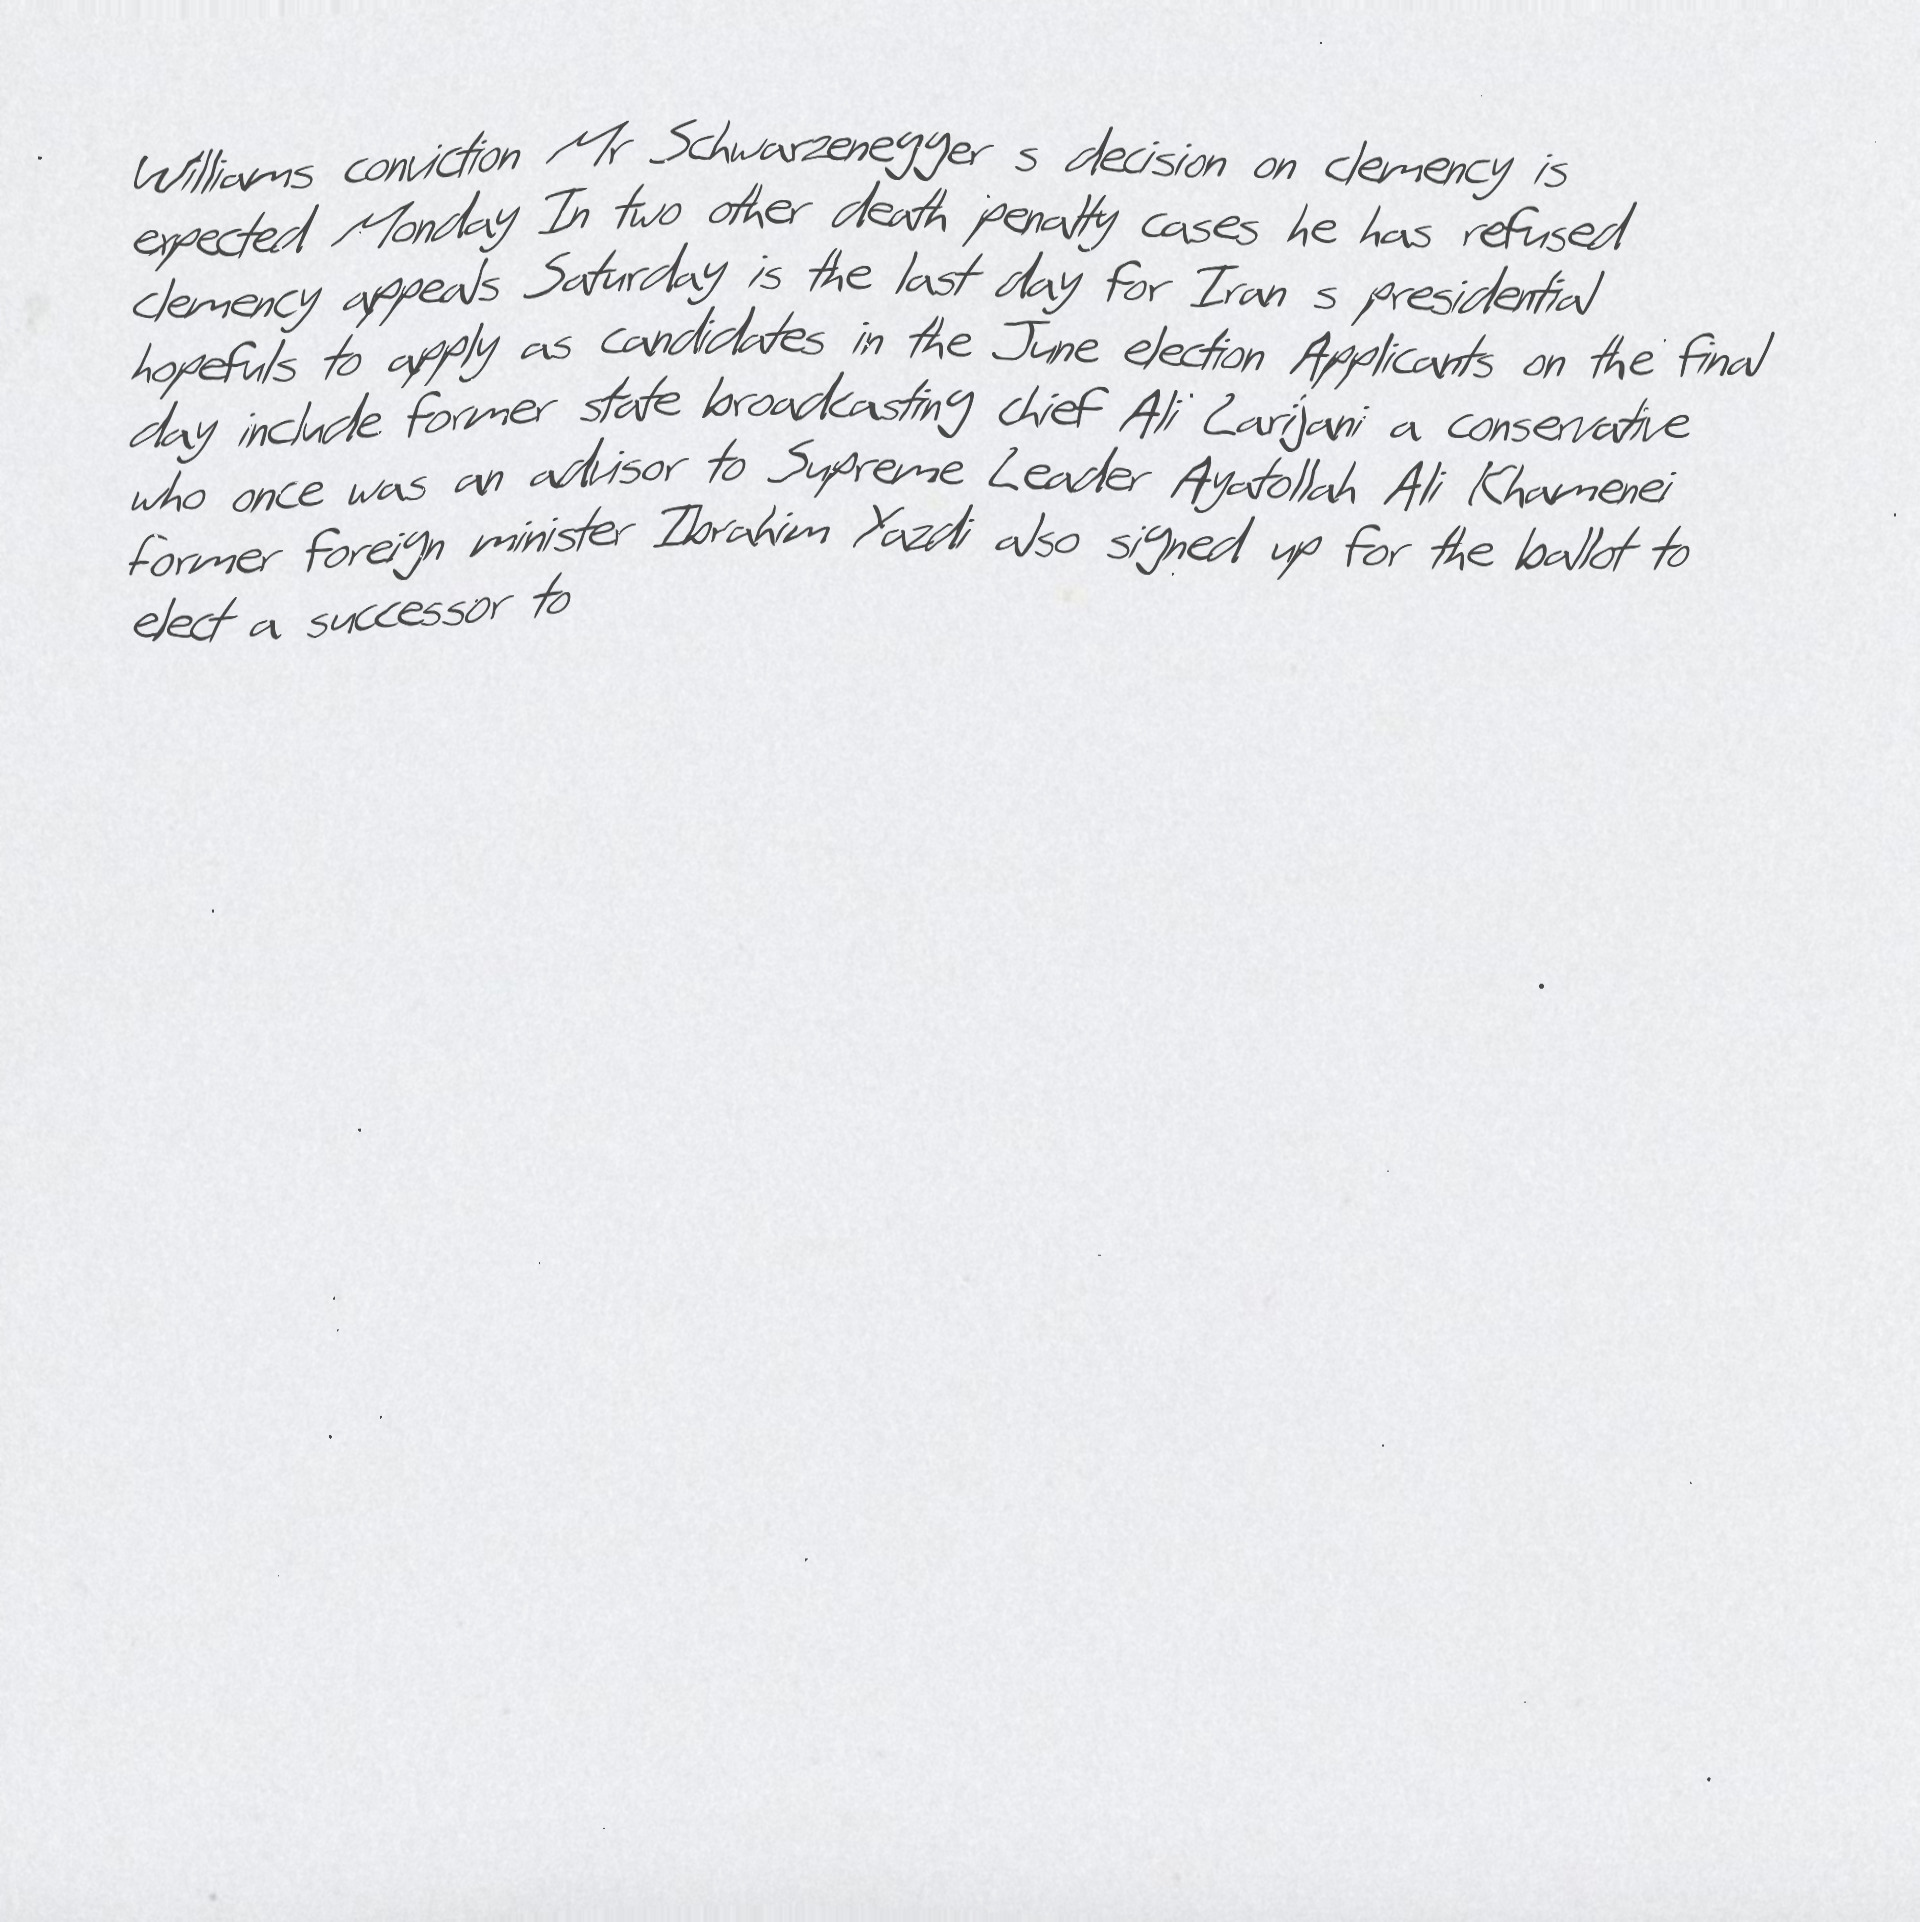 Williams conviction Mr Schwarzenegger s decision on clemency is
expected Monday In two other death penalty cases he has refused
clemency appeals Saturday is the last day for Iran s presidential
hopefuls to apply as candidates in the June election Applicants on the final
day include former state broadcasting chief Ali Larijani a conservative
who once was an advisor to Supreme Leader Ayatollah Ali Khamenei
former foreign minister Ibrahim Yazdi also signed up for the ballot to
elect a successor to